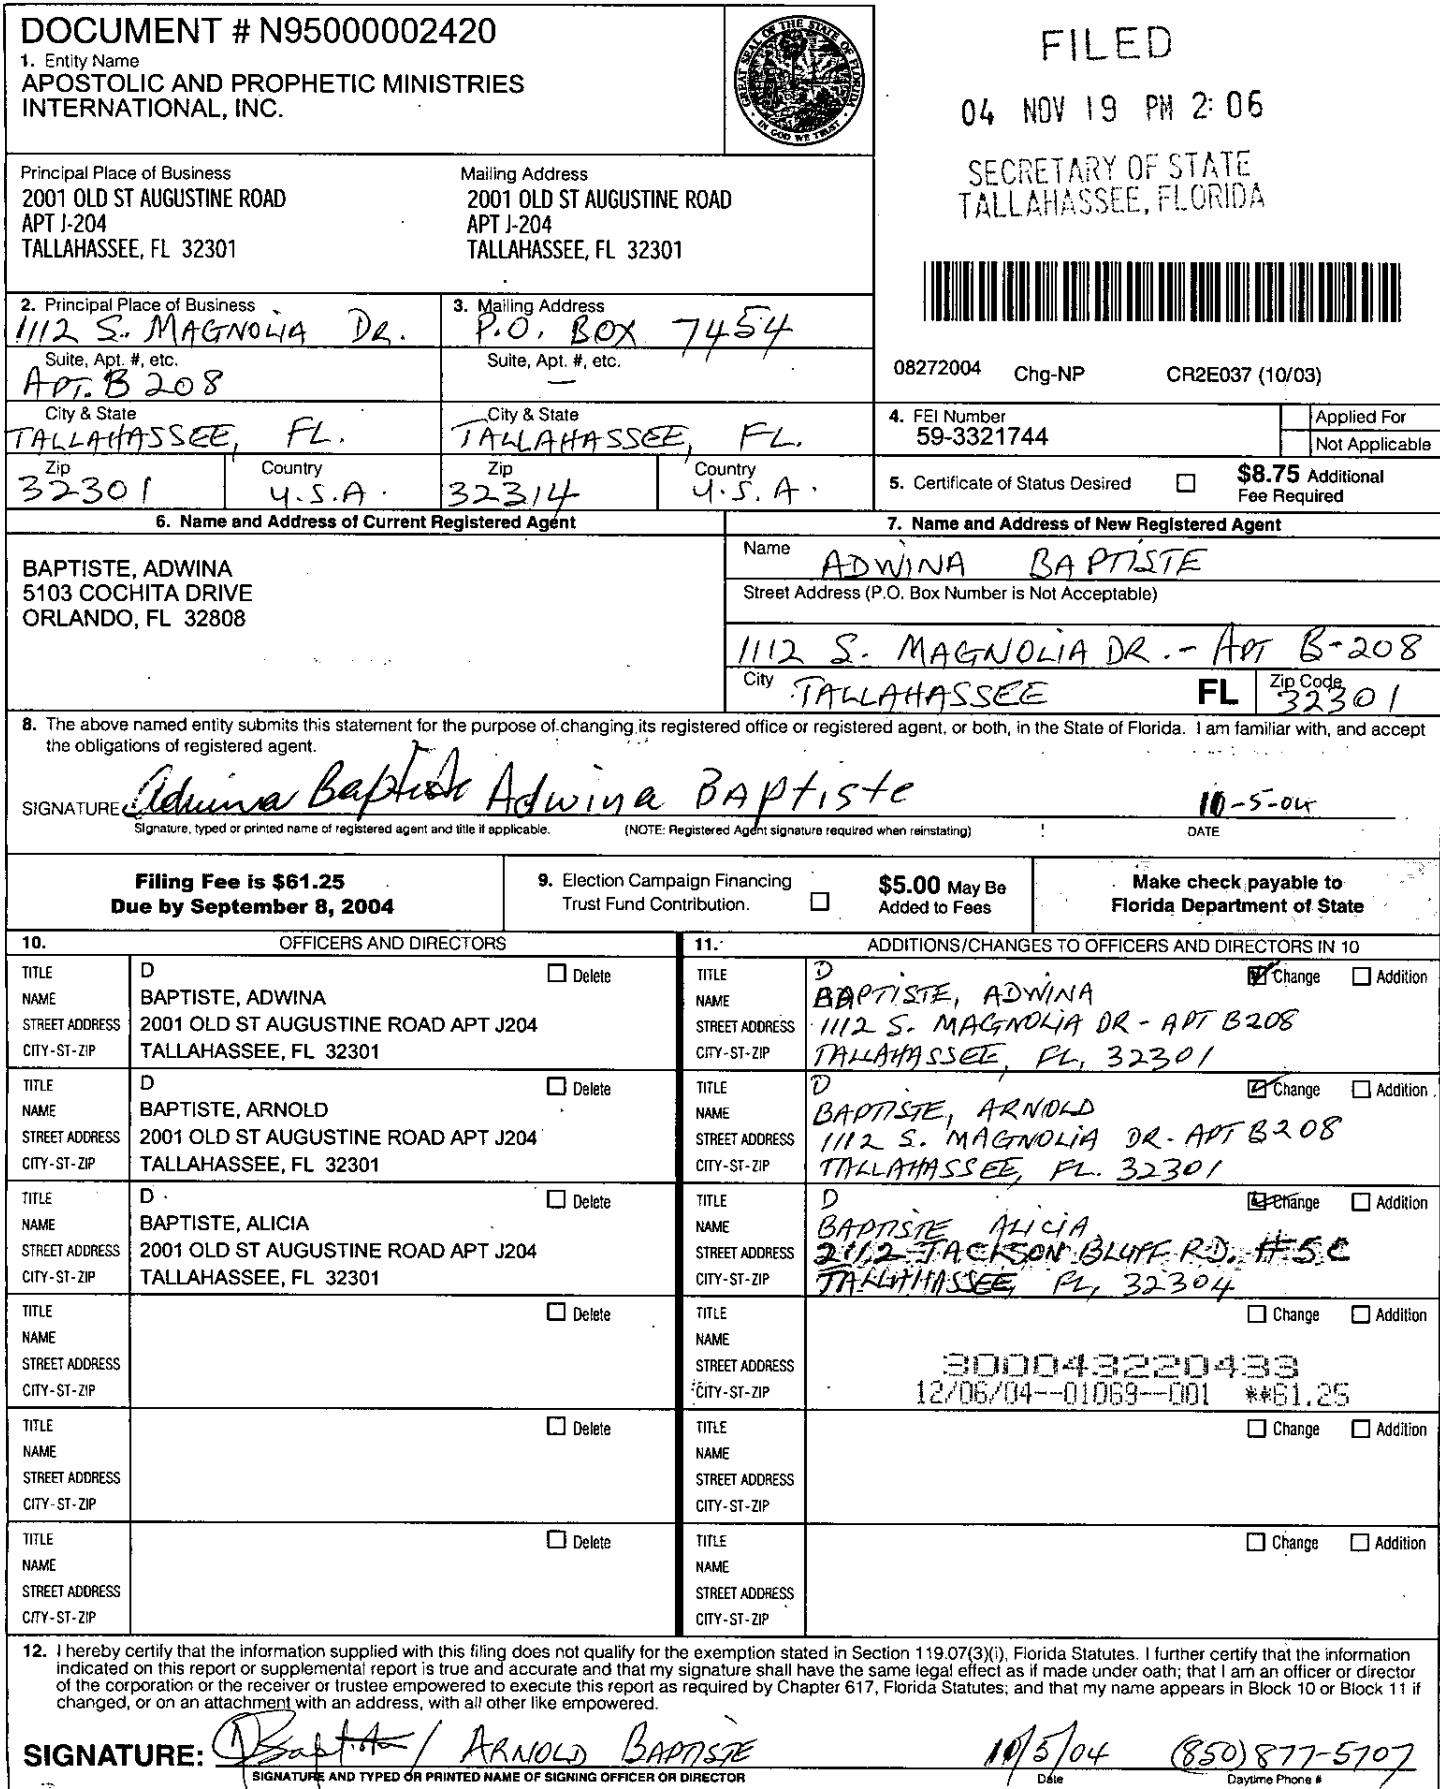 DOCUMENT # N95000002420
1. Entity Name
APOSTOLIC AND PROPHETIC MINISTRIES
INTERNATIONAL, INC.
GREAT SEAL OF THE STATE OF FLORIDA
IN GOD WE TRUST
FILED
04 NOV 19 PM 2:06
SECRETARY OF STATE
TALLAHASSEE, FLORIDA
Principal Place of Business
2001 OLD ST AUGUSTINE ROAD
APT J-204
TALLAHASSEE, FL 32301
Mailing Address
2001 OLD ST AUGUSTINE ROAD
APT J-204
TALLAHASSEE, FL 32301
2. Principal Place of Business
1112 S. MAGNOLIA DR.
Suite, Apt. #, etc.
APT. B 208
City & State
TALLAHASSEE, FL.
Zip
32301
Country
U.S.A.
3. Mailing Address
P.O. BOX 7454
Suite, Apt. #, etc.
—
City & State
TALLAHASSEE, FL.
Zip
32314
Country
U.S.A.
08272004 Chg-NP CR2E037 (10/03)
4. FEI Number
59-3321744
Applied For
Not Applicable
5. Certificate of Status Desired
$8.75 Additional
Fee Required
6. Name and Address of Current Registered Agent
BAPTISTE, ADWINA
5103 COCHITA DRIVE
ORLANDO, FL 32808
7. Name and Address of New Registered Agent
Name ADWINA BAPTISTE
Street Address (P.O. Box Number is Not Acceptable)
1112 S. MAGNOLIA DR. - APT B-208
City TALLAHASSEE FL Zip Code 32301
8. The above named entity submits this statement for the purpose of changing its registered office or registered agent, or both, in the State of Florida. I am familiar with, and accept
the obligations of registered agent.
SIGNATURE Adwina Baptiste Adwina BAptiste 10-5-04
Signature, typed or printed name of registered agent and title if applicable. (NOTE: Registered Agent signature required when reinstating) DATE
Filing Fee is $61.25
Due by September 8, 2004
9. Election Campaign Financing
Trust Fund Contribution.
$5.00 May Be
Added to Fees
Make check payable to
Florida Department of State
10. OFFICERS AND DIRECTORS
TITLE D Delete
NAME BAPTISTE, ADWINA
STREET ADDRESS 2001 OLD ST AUGUSTINE ROAD APT J204
CITY-ST-ZIP TALLAHASSEE, FL 32301
TITLE D Delete
NAME BAPTISTE, ARNOLD
STREET ADDRESS 2001 OLD ST AUGUSTINE ROAD APT J204
CITY-ST-ZIP TALLAHASSEE, FL 32301
TITLE D Delete
NAME BAPTISTE, ALICIA
STREET ADDRESS 2001 OLD ST AUGUSTINE ROAD APT J204
CITY-ST-ZIP TALLAHASSEE, FL 32301
TITLE Delete
NAME
STREET ADDRESS
CITY-ST-ZIP
TITLE Delete
NAME
STREET ADDRESS
CITY-ST-ZIP
TITLE Delete
NAME
STREET ADDRESS
CITY-ST-ZIP
11. ADDITIONS/CHANGES TO OFFICERS AND DIRECTORS IN 10
TITLE D Change Addition
NAME BAPTISTE, ADWINA
STREET ADDRESS 1112 S. MAGNOLIA DR - APT B208
CITY-ST-ZIP TALLAHASSEE, FL, 32301
TITLE D Change Addition
NAME BAPTISTE, ARNOLD
STREET ADDRESS 1112 S. MAGNOLIA DR - APT B208
CITY-ST-ZIP TALLAHASSEE, FL. 32301
TITLE D Change Addition
NAME BAPTISTE ALICIA
STREET ADDRESS 2112 JACKSON BLUFF RD. #5C
CITY-ST-ZIP TALLAHASSEE, FL, 32304
TITLE Change Addition
NAME
STREET ADDRESS 300043220433
CITY-ST-ZIP 12/06/04--01069--001 **61.25
TITLE Change Addition
NAME
STREET ADDRESS
CITY-ST-ZIP
TITLE Change Addition
NAME
STREET ADDRESS
CITY-ST-ZIP
12. I hereby certify that the information supplied with this filing does not qualify for the exemption stated in Section 119.07(3)(i), Florida Statutes. I further certify that the information
indicated on this report or supplemental report is true and accurate and that my signature shall have the same legal effect as if made under oath; that I am an officer or director
of the corporation or the receiver or trustee empowered to execute this report as required by Chapter 617, Florida Statutes; and that my name appears in Block 10 or Block 11 if
changed, or on an attachment with an address, with all other like empowered.
SIGNATURE: ABaptiste / ARNOLD BAPTISTE 10/5/04 (850) 877-5707
SIGNATURE AND TYPED OR PRINTED NAME OF SIGNING OFFICER OR DIRECTOR Date Daytime Phone #